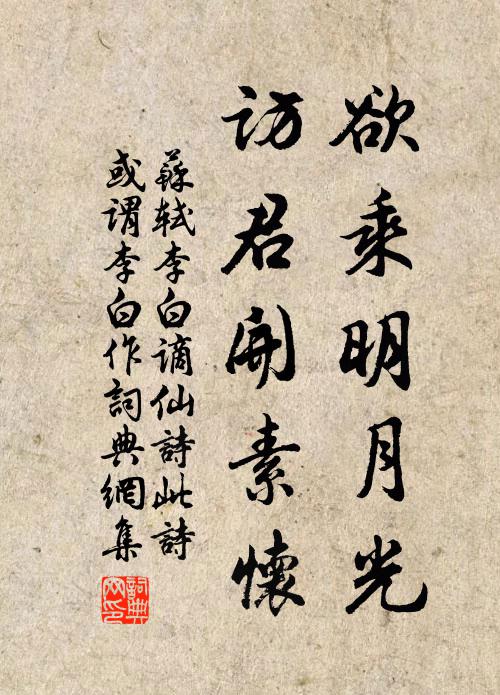 欲乘明月光
访君開素懷
蘇軾李白謫仙詩此詩
或謂李白作詞典網集
詞典網印